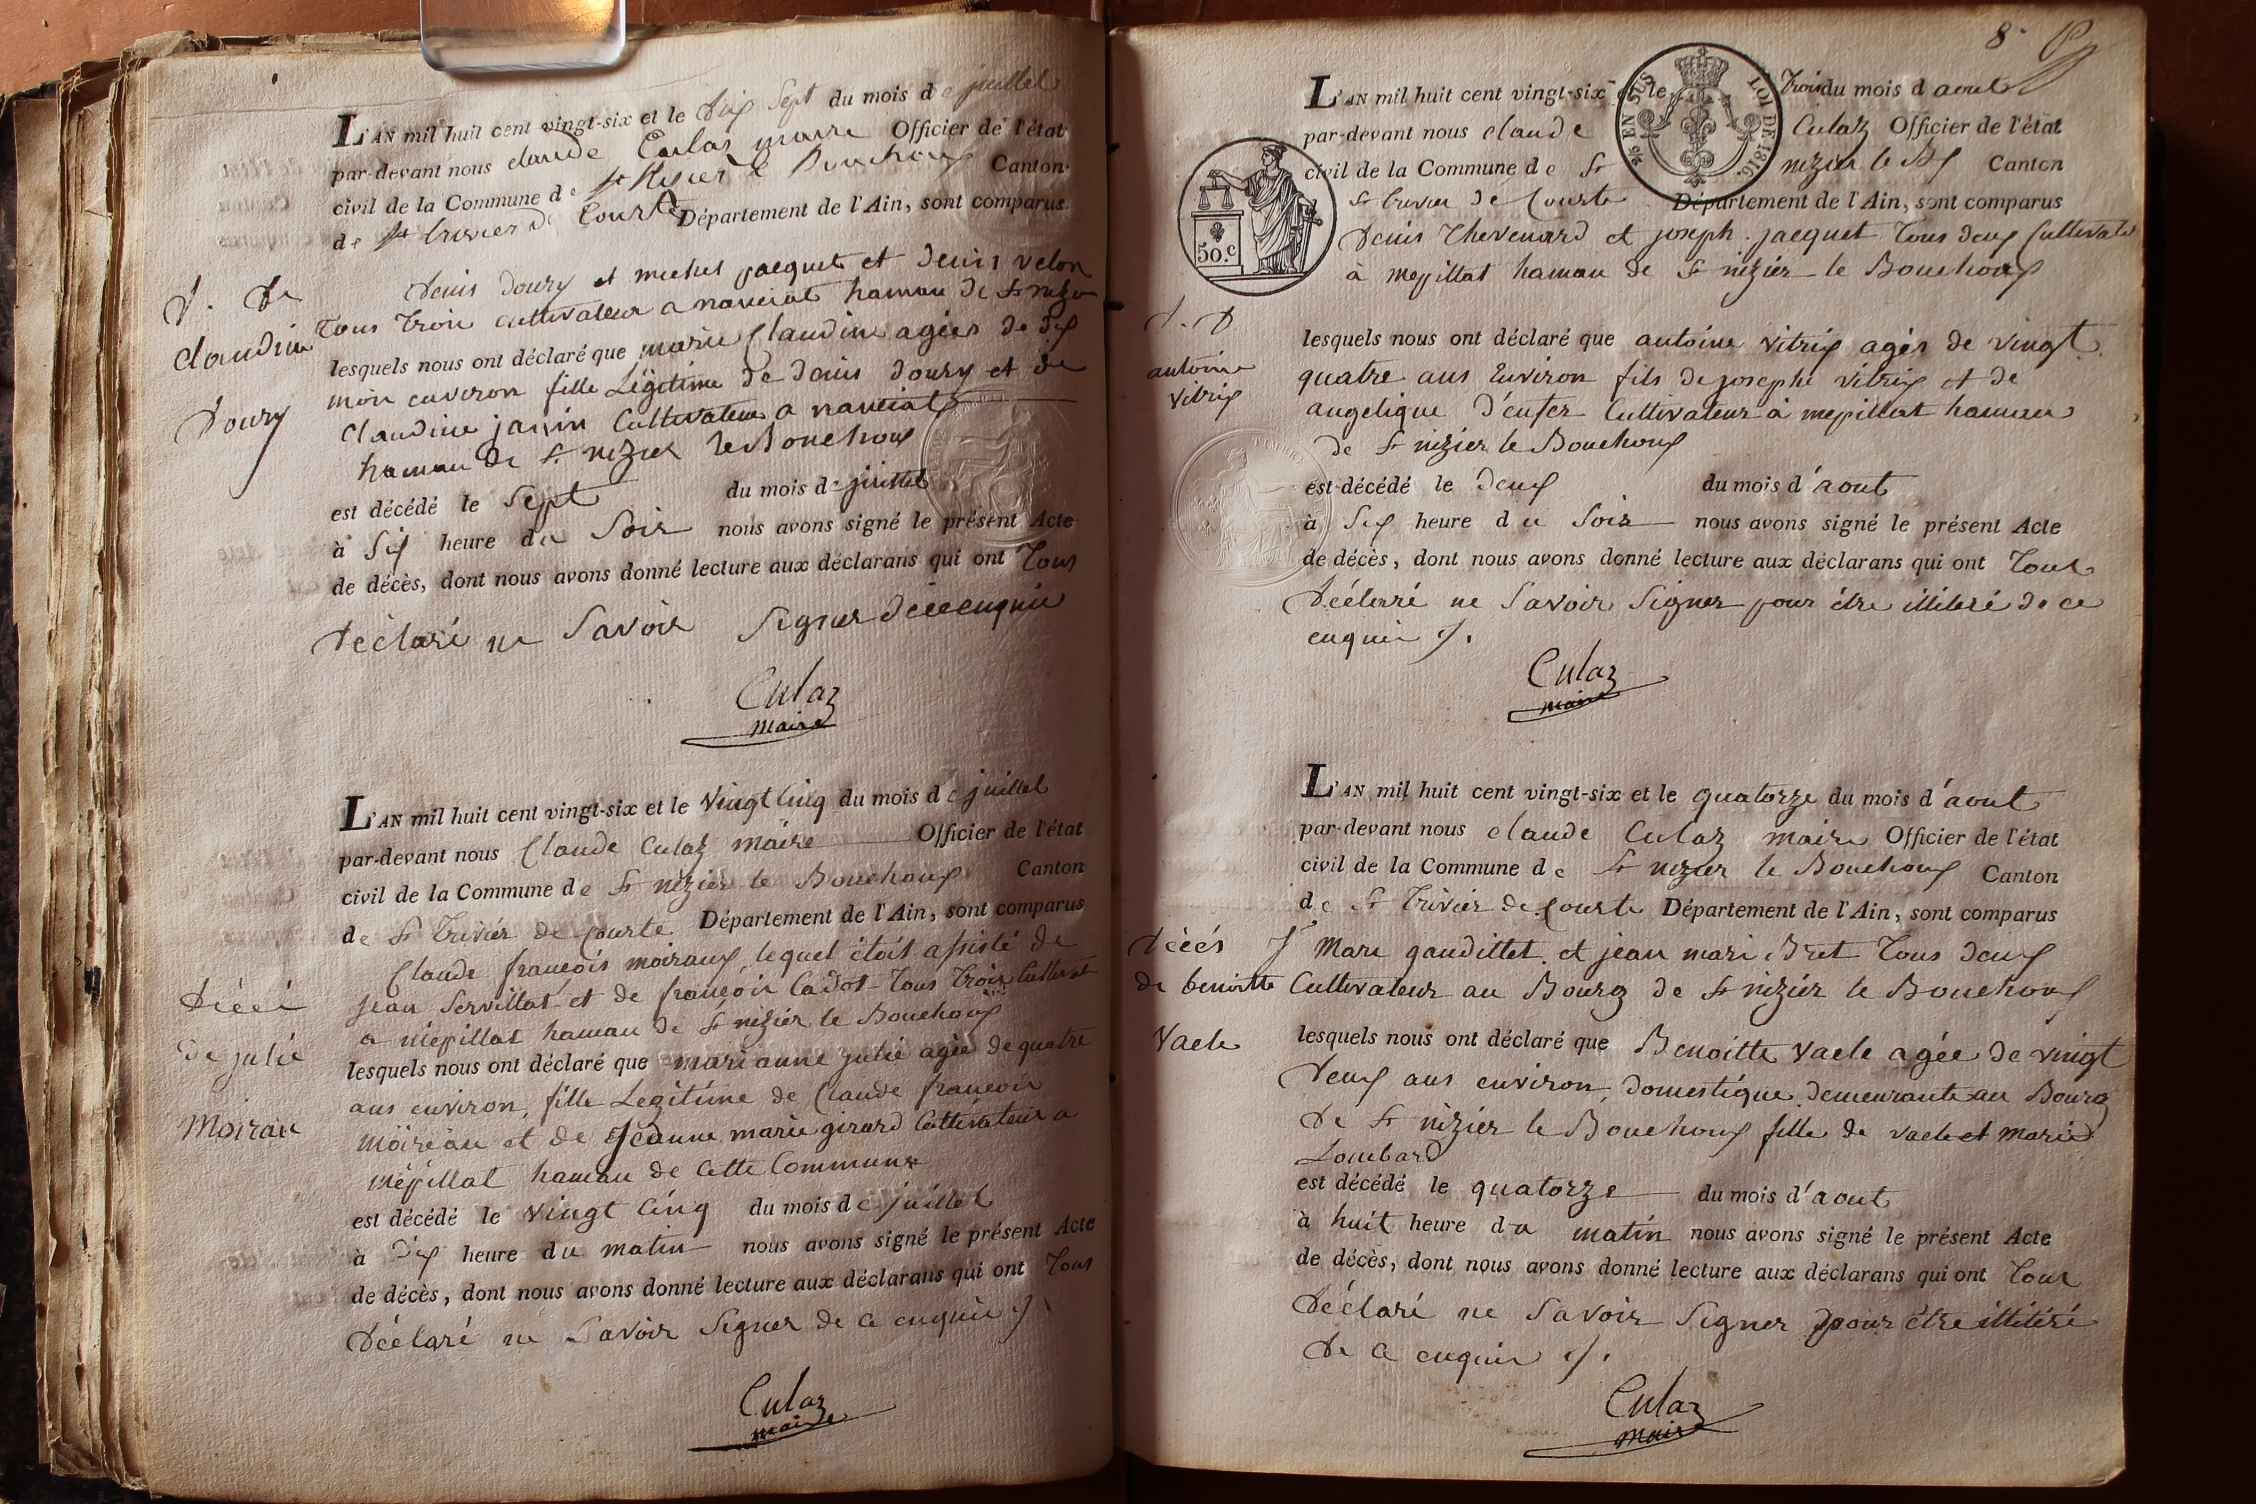 L'AN mil huit cent vingt-six et le dix sept du mois de juillet
par-devant nous claude Culaz maire Officier de l'état
civil de la Commune de st Nizier le Bouchoux Canton
de st trivier de Courte Département de l'Ain, sont comparus
denis doury et michel jacquet et denis velon
tous trois cultivateur a nanciat hamau de st nizier
D. De
claudine
doury
lesquels nous ont déclaré que marie Claudine agées de dix
mois environ fille Légitime de denis doury et de
claudine janin Cultivateur a nanciat
hamau de st nizier le Bouchoux
est décédé le sept du mois de juillet
à six heure du soir nous avons signé le présent Acte
de décès, dont nous avons donné lecture aux déclarans qui ont tous
déclaré ne savoir signer de ce enquie
Culaz
maire
L'AN mil huit cent vingt-six et le vingt cinq du mois de juillet
par-devant nous Claude Culaz maire Officier de l'état
civil de la Commune de st nizier le Bouchoux Canton
de st trivier de Courte Département de l'Ain, sont comparus
Claude françois moiraux, lequel étoit assisté de
jean Servillat et de françois Cadot tous trois Cultivat
a mépillat hamau de st nizier le Bouchoux
décé
de julie
Moirau
lesquels nous ont déclaré que marianne julie agée de quatre
ans environ, fille Légitime de Claude francois
moireau et de Jeanne marie girard Cultivateur a
mépillat hamau de cette Commune
est décédé le vingt cinq du mois de juillet
à dix heure du matin nous avons signé le présent Acte
de décès, dont nous avons donné lecture aux déclarans qui ont tous
déclaré ne savoir signer de ce enquie
Culaz
maire
8
L'AN mil huit cent vingt-six et le trois du mois d aout
par-devant nous claude Culaz Officier de l'état
civil de la Commune de st nizier le Bx Canton
st trivier de Courte Département de l'Ain, sont comparus
denis thevenard et joseph jacquet tous deux Cultivateur
à mepillat hamau de st nizier le Bouchoux
EN SUS LOI DE 1816.
50.c
D. D
antoine
vitrix
lesquels nous ont déclaré que antoine vitrix agés de vingt
quatre ans Environ fils de josephe vitrix et de
angelique d'enfer Cultivateur à mepillat hamau
de st nizier le Bouchoux
est décédé le deux du mois d'aout
à six heure du soir nous avons signé le présent Acte
de décès, dont nous avons donné lecture aux déclarans qui ont tous
déclarré ne savoir signer pour étre illiteré de ce
enquie
Culaz
maire
L'AN mil huit cent vingt-six et le quatorze du mois d'aout
par-devant nous claude Culaz maire Officier de l'état
civil de la Commune de st nizier le Bouchoux Canton
de st trivier de Courte Département de l'Ain, sont comparus
Marc gaudillet et jean mari Bret tous deux
Cultivateur au Bourg de st nizier le Bouchoux
décés
de benoitte
Vacle
lesquels nous ont déclaré que Benoitte Vacle agée de vingt
deux ans environ, domestique demeurante au Bourg
de st nizier le Bouchoux fille de vacle et marie
Lombard
est décédé le quatorze du mois d'aout
à huit heure du matin nous avons signé le présent Acte
de décès, dont nous avons donné lecture aux déclarans qui ont tous
déclaré ne savoir signer pour étre illitéré
de ce enquie
Culaz
maire